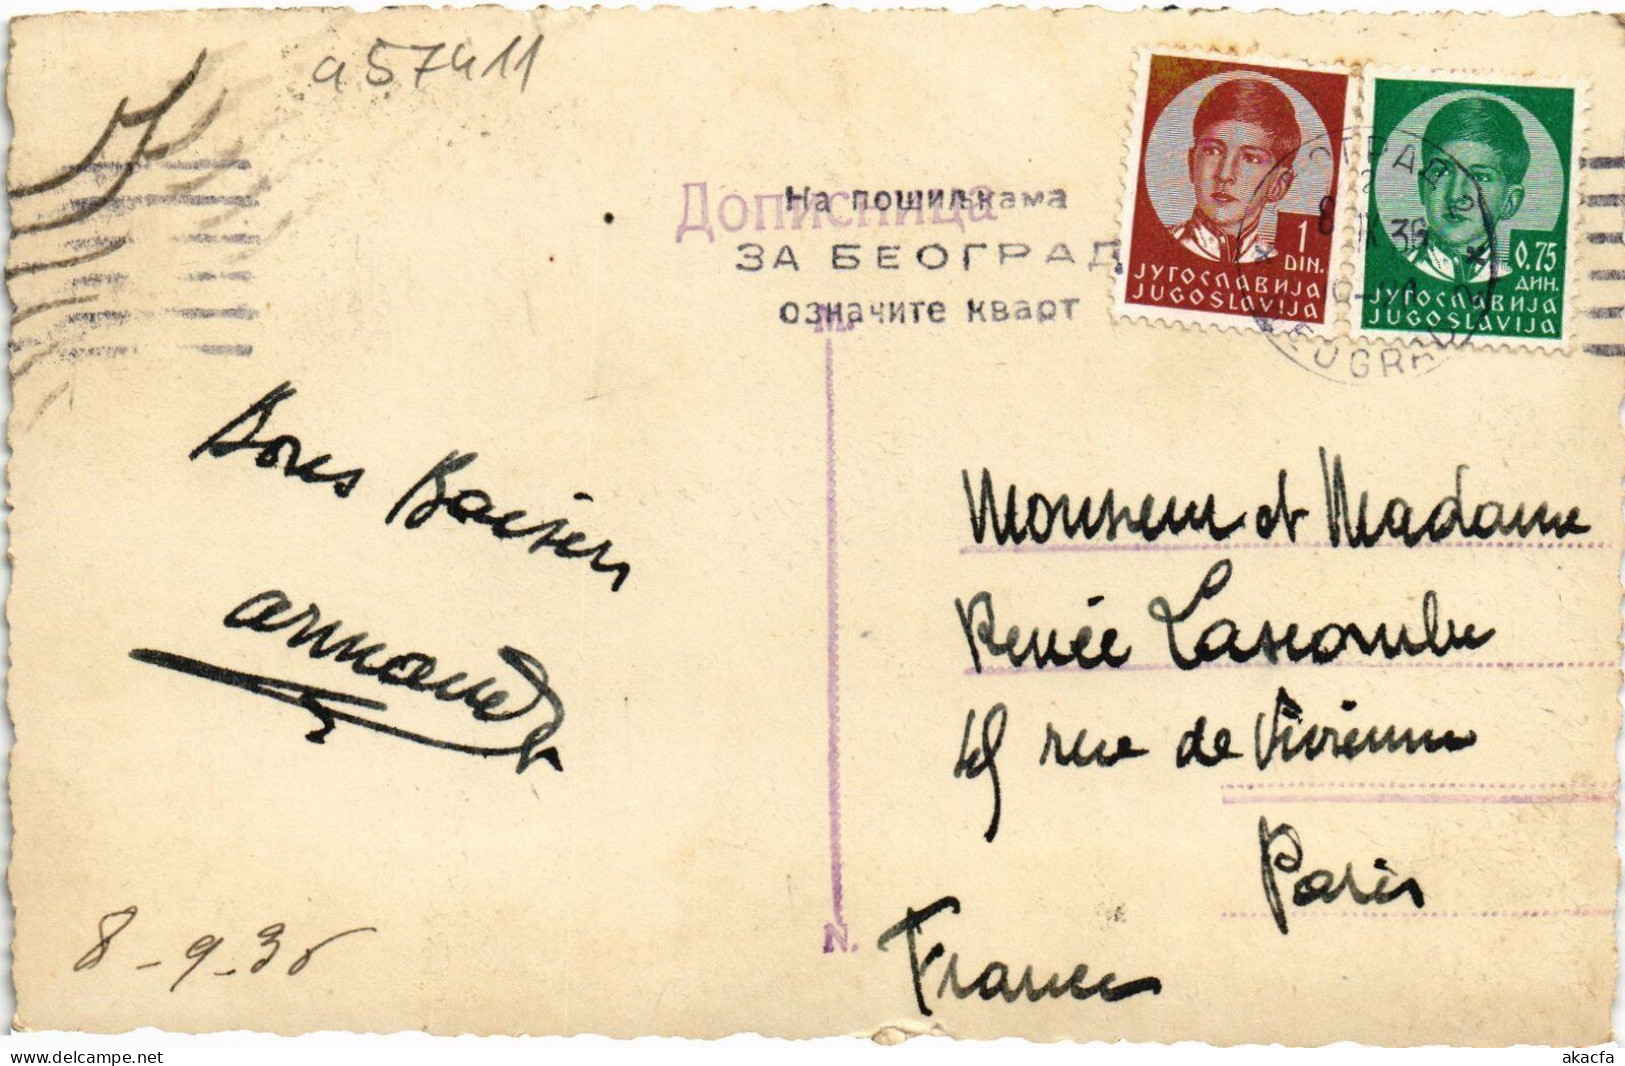 a57411
Дописница
На пошиљкама
ЗА БЕОГРАД
означите кварт
1
DIN.
ЈУГОСЛАВИЈА
JUGOSLAVIJA
0.75
ДИН.
ЈУГОСЛАВИЈА
JUGOSLAVIJA
M.
Bons Baisers
Armand
Monsieur et Madame
Renée Lascombe
rue de Vivienne
Paris
France
8-9-36
N.
delcampe.net
akacfa